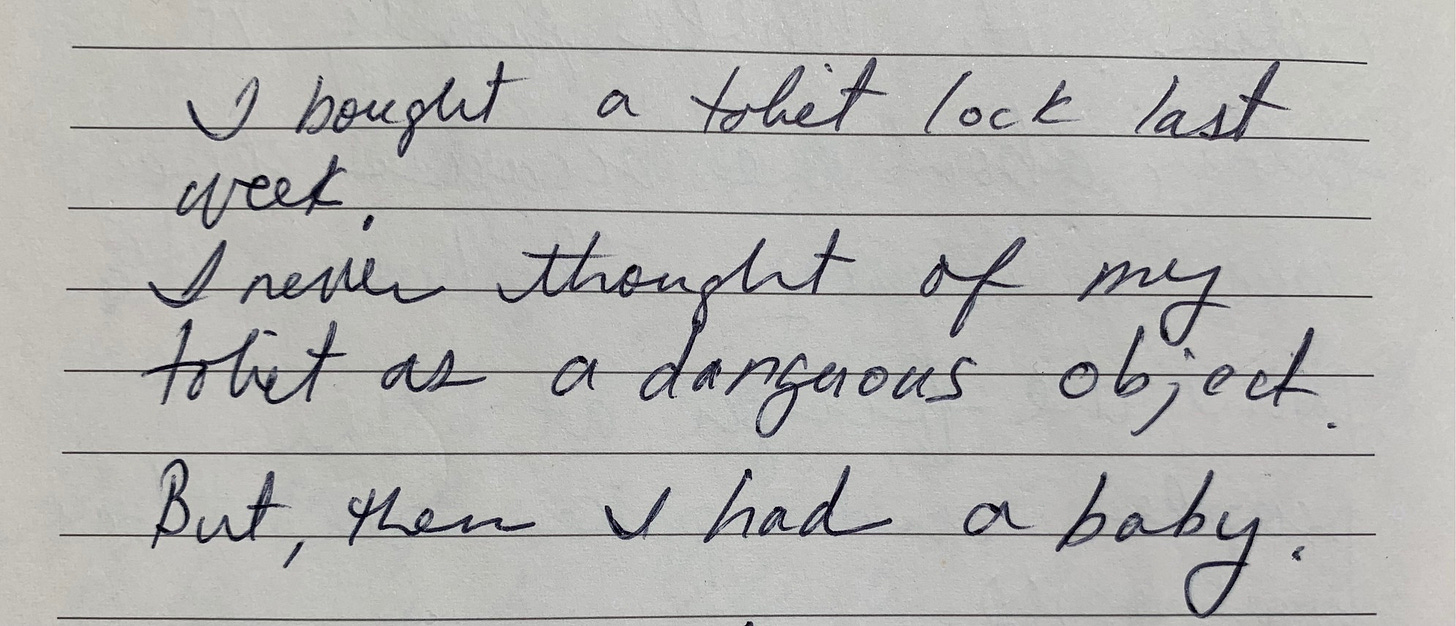 I bought a toliet lock last
week.
I never thought of my
toliet as a danguous object.
But, then I had a baby.